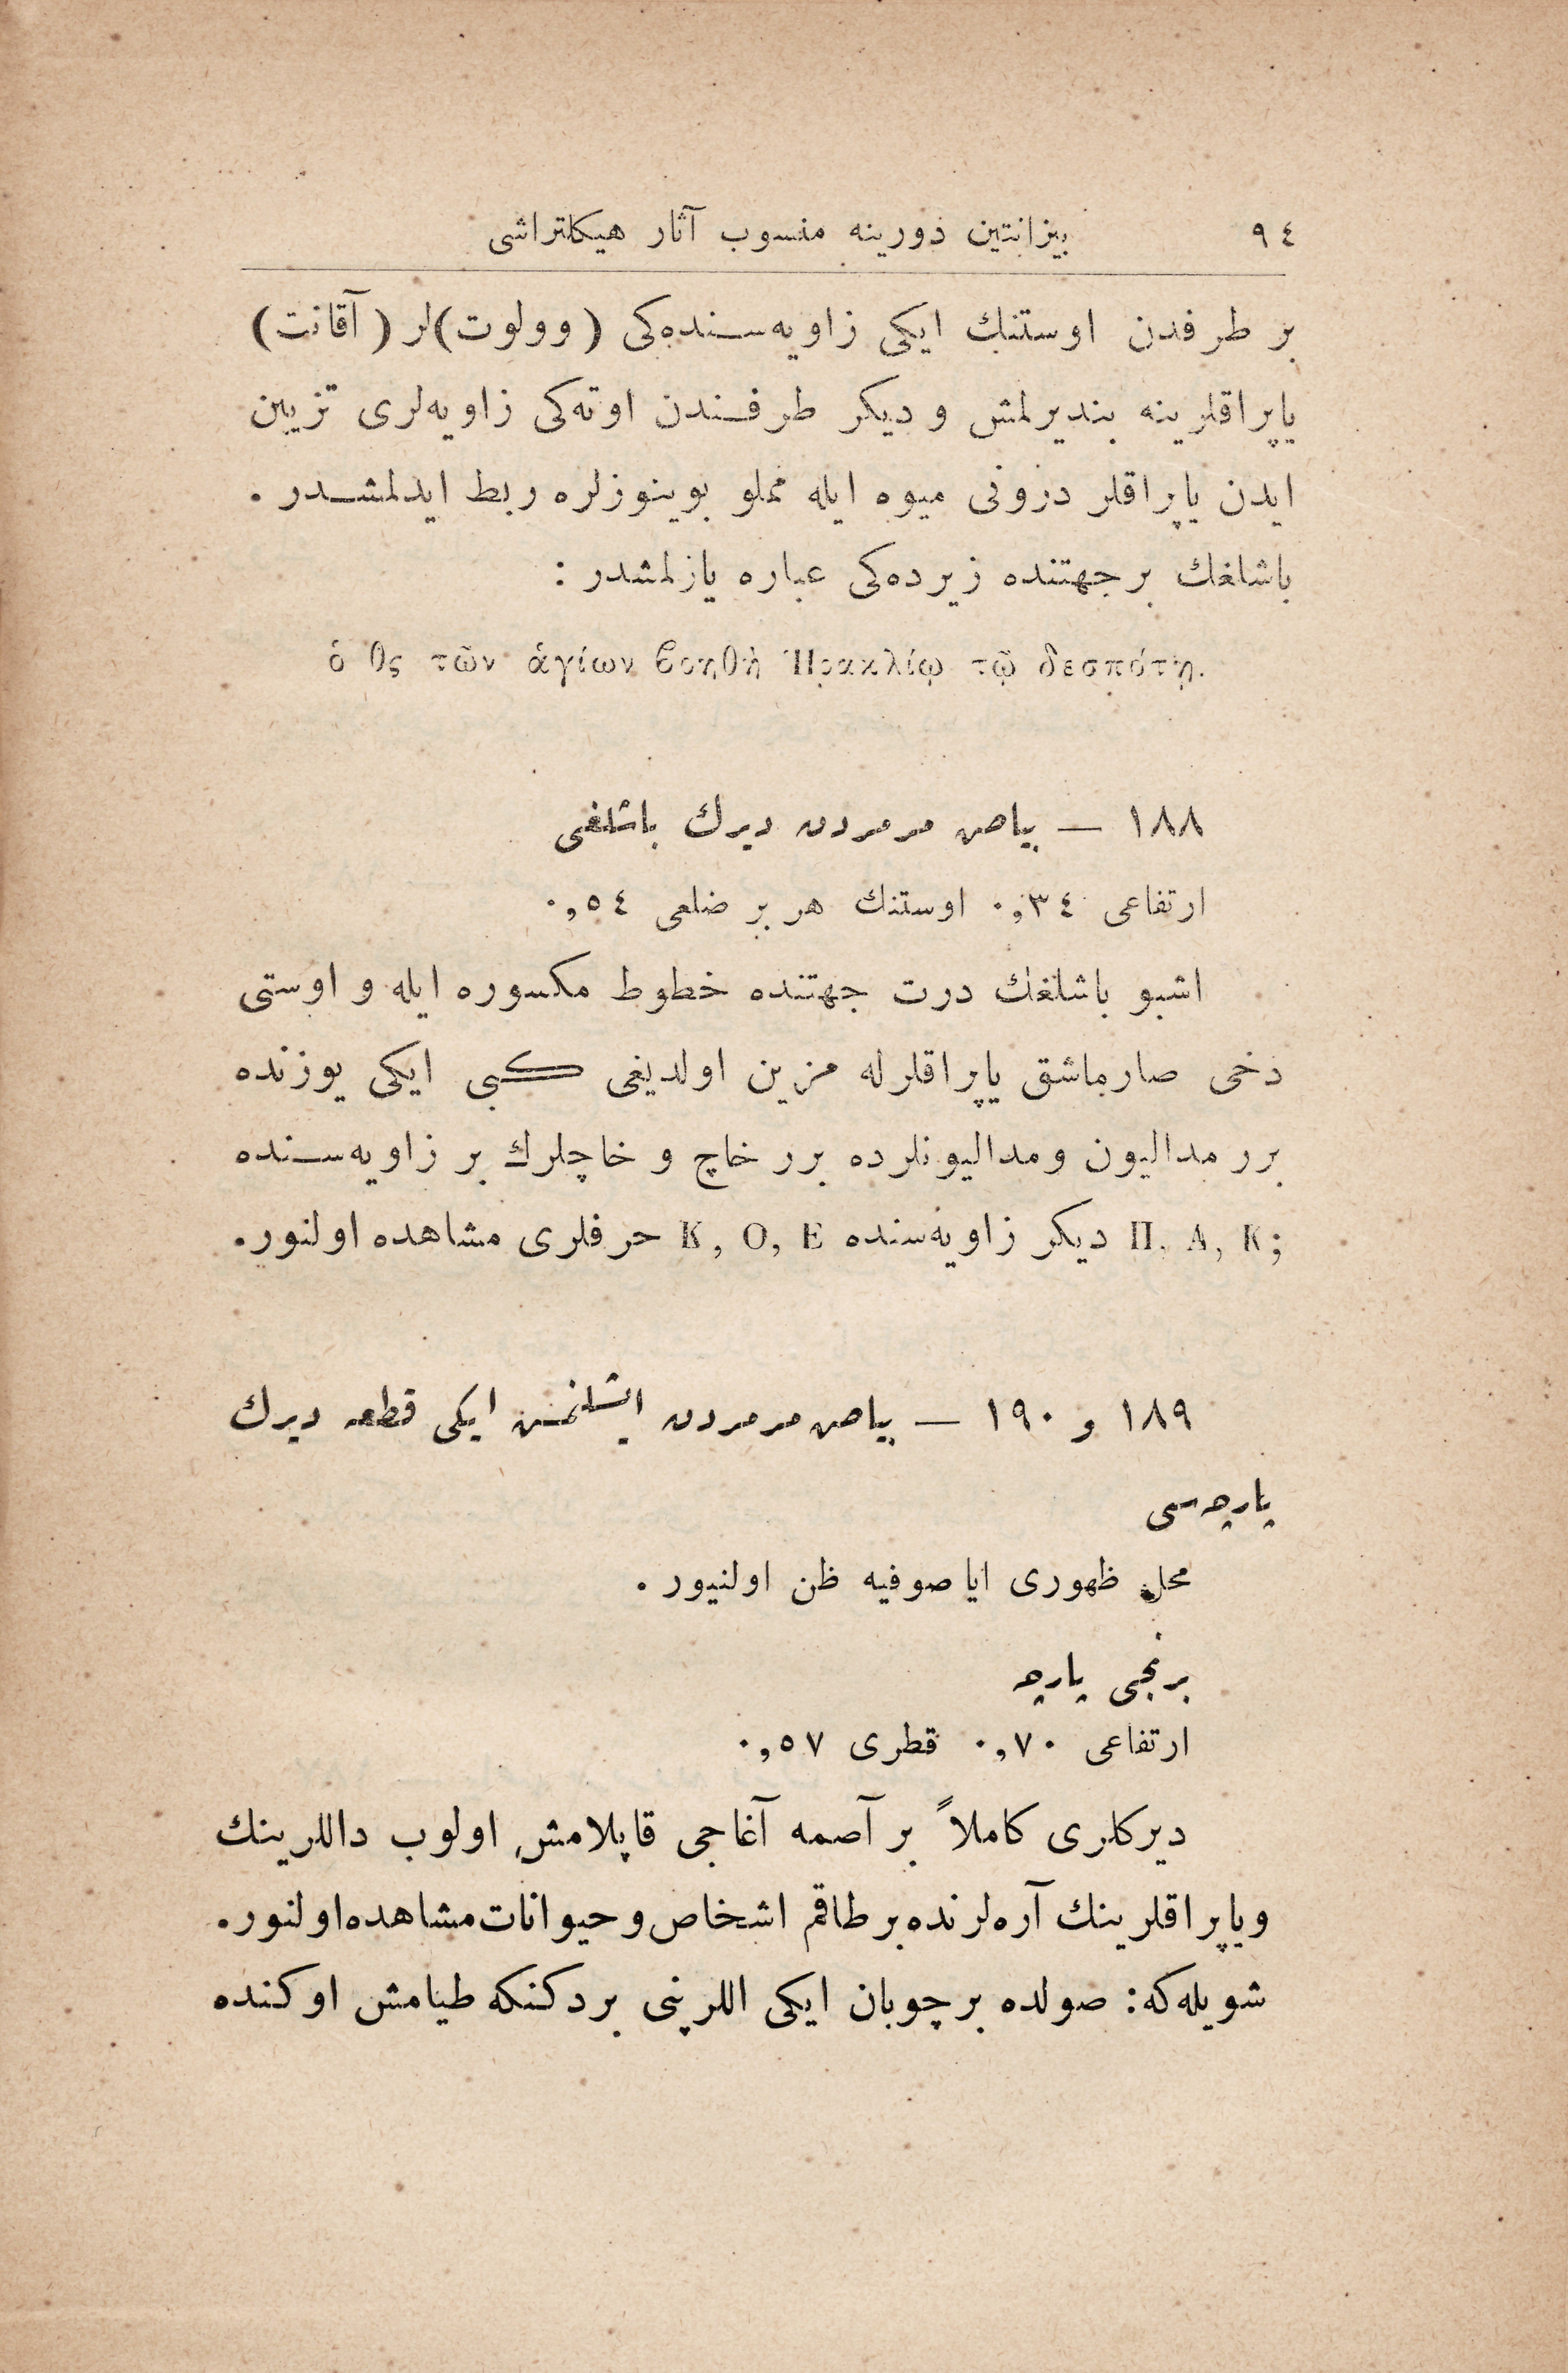 ٩٤ بيزانتين دورينه منسوب آثار هيكلتراشى
بر طرفدن اوستنك ايكى زاويه‌سنده‌كى (وولوت)لر (آقانت)
ياپراقلرينه بنديرلمش و ديكر طرفندن اوته‌كى زاويه‌لرى تزيين
ايدن ياپراقلر درونى ميوه ايله مملو بوينوزلره ربط ايدلمشدر .
باشلغك بر جهتنده زيرده‌كى عباره يازلمشدر :
ὁ θς τῶν ἁγίων βοηθὴ Ἡρακλίῳ τῷ δεσπότῃ.
١٨٨ — بياض مرمردن ديرك باشلغى
ارتفاعى ٠,٣٤ اوستنك هر بر ضلعى ٠,٥٤
اشبو باشلغك درت جهتنده خطوط مكسوره ايله و اوستى
دخى صارماشق ياپراقلرله مزين اولديغى كبى ايكى يوزنده
برر مداليون ومداليونلرده برر خاچ و خاچلرك بر زاويه‌سنده
Π, Α, Κ; ديكر زاويه‌سنده Κ, Ο, Ε حرفلرى مشاهده اولنور.
١٨٩ و ١٩٠ — بياض مرمردن ايشلنمش ايكى قطعه ديرك
پارچه‌سى
محل ظهورى اياصوفيه ظن اولنيور .
برنجى پارچه
ارتفاعى ٠,٧٠ قطرى ٠,٥٧
ديركلرى كاملاً بر آصمه آغاجى قاپلامش اولوب داللرينك
وياپراقلرينك آره‌لرنده بر طاقم اشخاص و حيوانات مشاهده اولنور.
شويله‌كه: صولده بر چوبان ايكى اللرينى بر دكنكه طيامش اوكنده